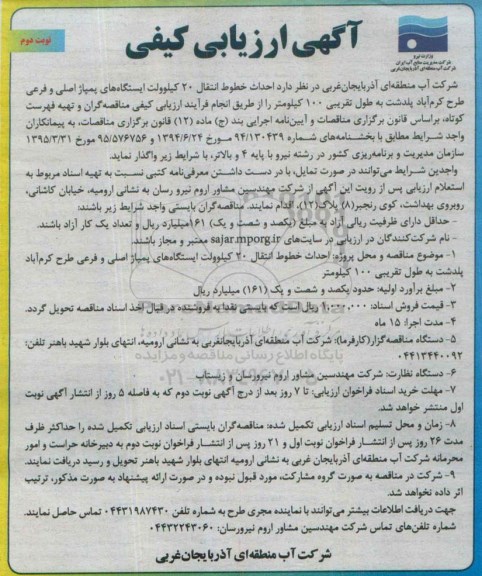 نوبت دوم
آگهی ارزیابی کیفی
وزارت نیرو
شرکت مدیریت منابع آب ایران
شرکت آب منطقه‌ای آذربایجان‌غربی
شرکت آب منطقه‌ای آذربایجان‌غربی در نظر دارد احداث خطوط انتقال ۲۰ کیلوولت ایستگاه‌های پمپاژ اصلی و فرعی
طرح کرم‌آباد پلدشت به طول تقریبی ۱۰۰ کیلومتر را از طریق انجام فرآیند ارزیابی کیفی مناقصه‌گران و تهیه فهرست
کوتاه، براساس قانون برگزاری مناقصات و آیین‌نامه اجرایی بند (ج) ماده (۱۲) قانون برگزاری مناقصات، به پیمانکاران
واجد شرایط مطابق با بخشنامه‌های شماره ۹۴/۱۳۰۴۳۹ مورخ ۱۳۹۴/۶/۲۴ و ۹۵/۵۷۶۷۵۶ مورخ ۱۳۹۵/۳/۳۱
سازمان مدیریت و برنامه‌ریزی کشور در رشته نیرو با پایه ۴ و بالاتر، با شرایط زیر واگذار نماید.
واجدین شرایط می‌توانند در صورت تمایل، با در دست داشتن معرفی‌نامه کتبی نسبت به تهیه اسناد مربوط به
استعلام ارزیابی پس از رویت این آگهی از شرکت مهندسین مشاور اروم نیرو رسان به نشانی ارومیه، خیابان کاشانی،
روبروی بهداشت، کوی رنجبر(۸) پلاک(۱۲)، اقدام نمایند. مناقصه‌گران بایستی واجد شرایط زیر باشند:
- حداقل دارای ظرفیت ریالی آزاد به مبلغ (یکصد و شصت و یک) ۱۶۱میلیارد ریال و تعداد یک کار آزاد باشند.
- نام شرکت‌کنندگان در ارزیابی در سایت‌های sajar.mporg.ir معتبر و مجاز باشند.
۱- موضوع مناقصه و محل پروژه: احداث خطوط انتقال ۲۰ کیلوولت ایستگاه‌های پمپاژ اصلی و فرعی طرح کرم‌آباد
پلدشت به طول تقریبی ۱۰۰ کیلومتر
۲- مبلغ برآورد اولیه: حدود یکصد و شصت و یک (۱۶۱) میلیارد ریال
۳- قیمت فروش اسناد: ۱،۰۰۰،۰۰۰ ریال است که بایستی نقدا به فروشنده در قبال اخذ اسناد مناقصه تحویل گردد.
۴- مدت اجرا: ۱۵ ماه
پایگاه اطلاع رسانی مناقصه و مزایده
۵- دستگاه مناقصه‌گزار(کارفرما): شرکت آب منطقه‌ای آذربایجانغربی به نشانی ارومیه، انتهای بلوار شهید باهنر تلفن:
۰۴۴۱۳۴۴۰۰۹۲
۶- دستگاه نظارت: شرکت مهندسین مشاور اروم نیرورسان و زیستاب
۷- مهلت خرید اسناد فراخوان ارزیابی: تا ۷ روز بعد از درج آگهی نوبت دوم که به فاصله ۵ روز از انتشار آگهی نوبت
اول منتشر خواهد شد.
۸- زمان و محل تسلیم اسناد ارزیابی تکمیل شده: مناقصه‌گران بایستی اسناد ارزیابی تکمیل شده را حداکثر ظرف
مدت ۲۶ روز پس از انتشار فراخوان نوبت اول و ۲۱ روز پس از انتشار فراخوان نوبت دوم به دبیرخانه حراست و امور
محرمانه شرکت آب منطقه‌ای آذربایجان غربی به نشانی ارومیه انتهای بلوار شهید باهنر تحویل و رسید دریافت نمایند.
۹- شرکت در مناقصه به صورت گروه مشارکت، مورد قبول نبوده و در صورت ارائه پیشنهاد به صورت مذکور، ترتیب
اثر داده نخواهد شد.
جهت دریافت اطلاعات بیشتر می‌توانند با نماینده مجری طرح به شماره تلفن ۰۴۴۳۱۹۸۷۴۳۰ تماس حاصل نمایند.
شماره تلفن‌های تماس شرکت مهندسین مشاور اروم نیرورسان: ۰۴۴۳۲۲۴۳۰۶۰
شرکت آب منطقه‌ای آذربایجان‌غربی